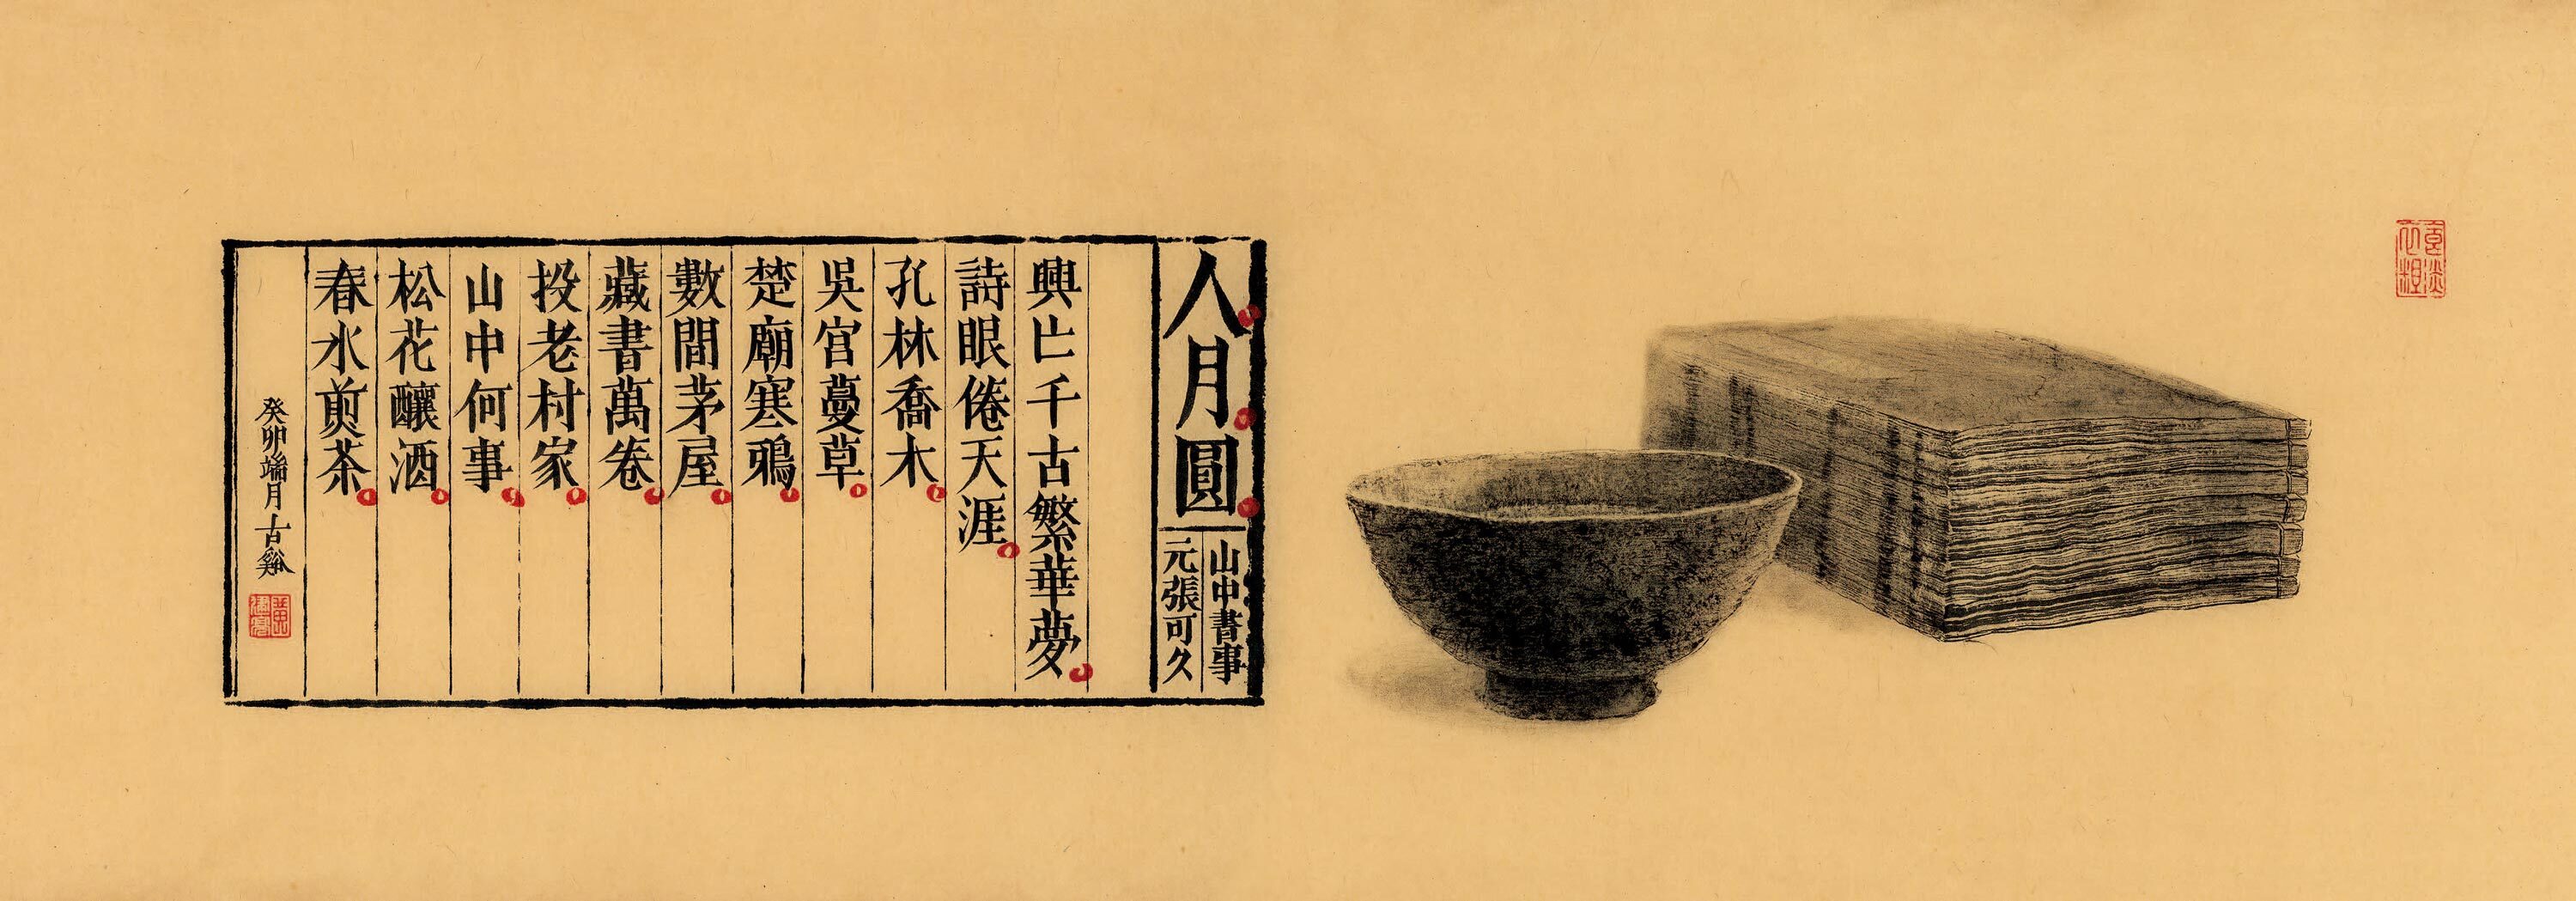 人月圓
山中書事
元張可久
興亡千古繁華夢
詩眼倦天涯
孔林喬木
吳宮蔓草
楚廟寒鴉
數間茅屋
藏書萬卷
投老村家
山中何事
松花釀酒
春水煎茶
癸卯端月古谿